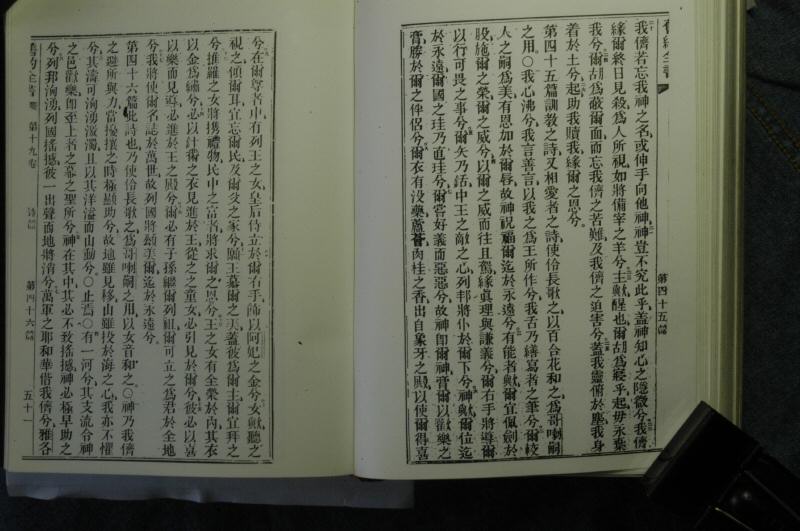 舊約全書
第四十五篇
我儕若忘我神之名或伸手向他神神豈不究此乎蓋神知心之隱微兮我儕
緣爾終日見殺為人所視如將備宰之羊兮主歟醒也爾胡為寢乎起毋永棄
我兮爾胡為蔽爾面而忘我儕之苦難及我儕之迫害兮蓋我靈俯於塵我身
着於土兮起助我贖我緣爾之恩兮
第四十五篇訓教之詩又相愛者之詩使伶長歌之以百合花和之為哥喇嗣
之用〇我心沸兮我言善言以我之為王所作兮我舌乃繕寫者之筆兮爾較
人之嗣為美有恩加於爾唇故神祝福爾迄於永遠兮有能者歟爾宜佩劍於
股施爾之榮爾之威兮以爾之威而往且駕緣眞理與謙義兮爾右手將導爾
以行可畏之事兮爾矢乃銛中王之敵之心列邦將仆於爾下兮神歟爾位迄
於永遠爾國之珪乃直珪兮爾嘗好義而惡惡兮故神即爾神膏爾以歡樂之
膏勝於爾之伴侶兮爾衣有沒藥蘆薈肉桂之香出自象牙之殿以使爾得喜
兮在爾尊者中有列王之女皇后侍立於爾右手飾以阿妃之金兮女歟聽之
視之傾爾耳宜忘爾民及爾父之家兮願王慕爾之美蓋彼為爾主爾宜拜之
兮推羅之女將携禮物民中之富者將求爾之恩兮王之女有全榮於內其衣
以金為繡兮必以針黹之衣見進於王從之之童女必引見於爾兮彼必以喜
以樂而見導必進於王之殿兮爾必有子孫繼爾列祖爾可立之為君於全地
兮我將使爾名誌於萬世故列國將頌美爾迄於永遠兮
第四十六篇此詩也乃使伶長歌之為哥喇嗣之用以女音和之〇神乃我儕
之避所與力當擾攘之時極顯助兮故地雖見移山雖投於海之心我亦不懼
兮其濤可洶湧激濁且以其洋溢而山動兮〇止焉〇有一河兮其支流令神
之邑歡樂即至上者之幕之聖所兮神在其中其必不致搖撼神必極早助之
兮列邦洶湧列國搖撼彼一出聲而地將消兮萬軍之耶和華偕我儕兮雅各
舊約全書
第十九卷
诗篇
第四十六篇
五十一